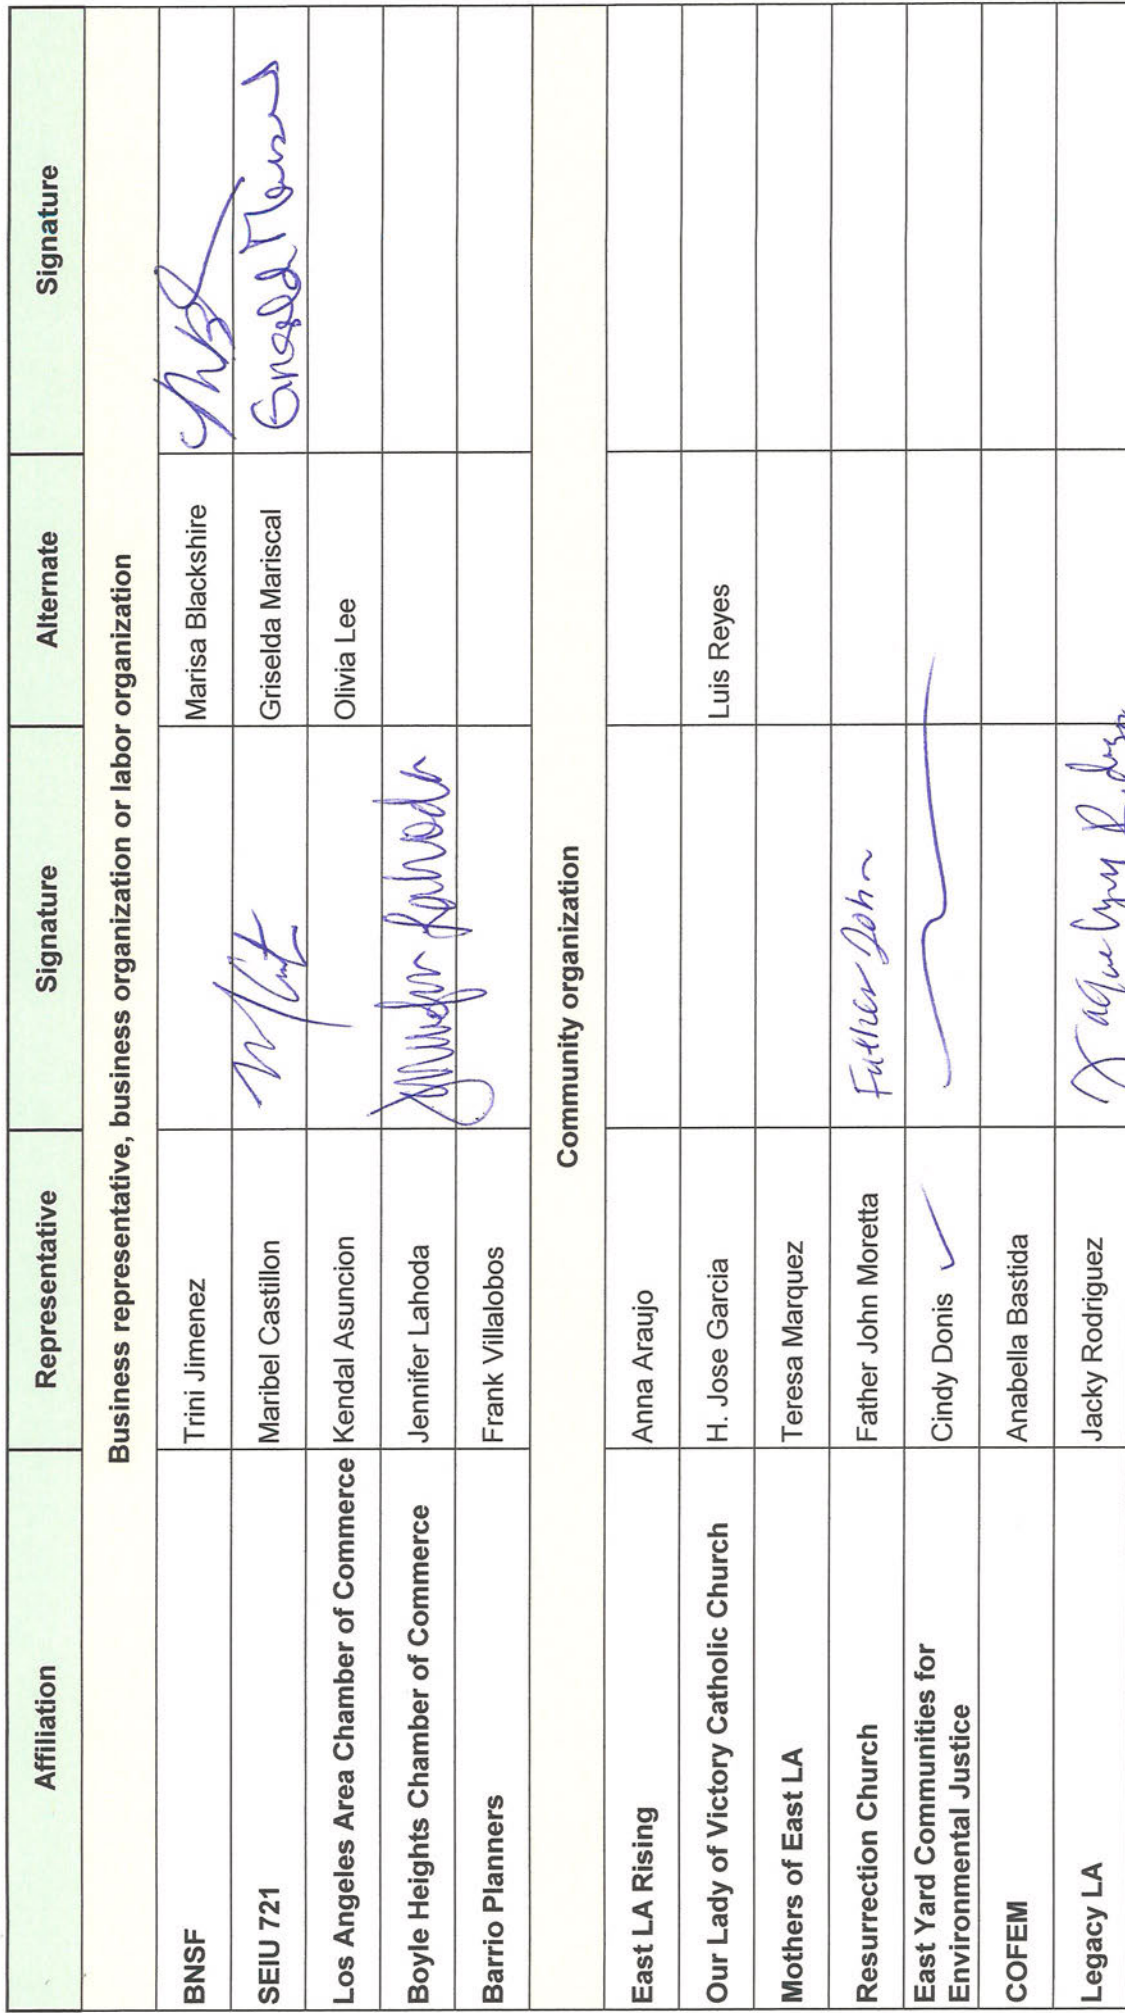 Affiliation Representative Signature Alternate Signature
Business representative, business organization or labor organization
BNSF Trini Jimenez Marisa Blackshire MB
SEIU 721 Maribel Castillon Griselda Mariscal
Los Angeles Area Chamber of Commerce Kendal Asuncion Olivia Lee
Boyle Heights Chamber of Commerce Jennifer Lahoda Jennifer Lahoda
Barrio Planners Frank Villalobos
Community organization
East LA Rising Anna Araujo
Our Lady of Victory Catholic Church H. Jose Garcia Luis Reyes
Mothers of East LA Teresa Marquez
Resurrection Church Father John Moretta Father John
East Yard Communities for
Environmental Justice Cindy Donis ✓
COFEM Anabella Bastida
Legacy LA Jacky Rodriguez